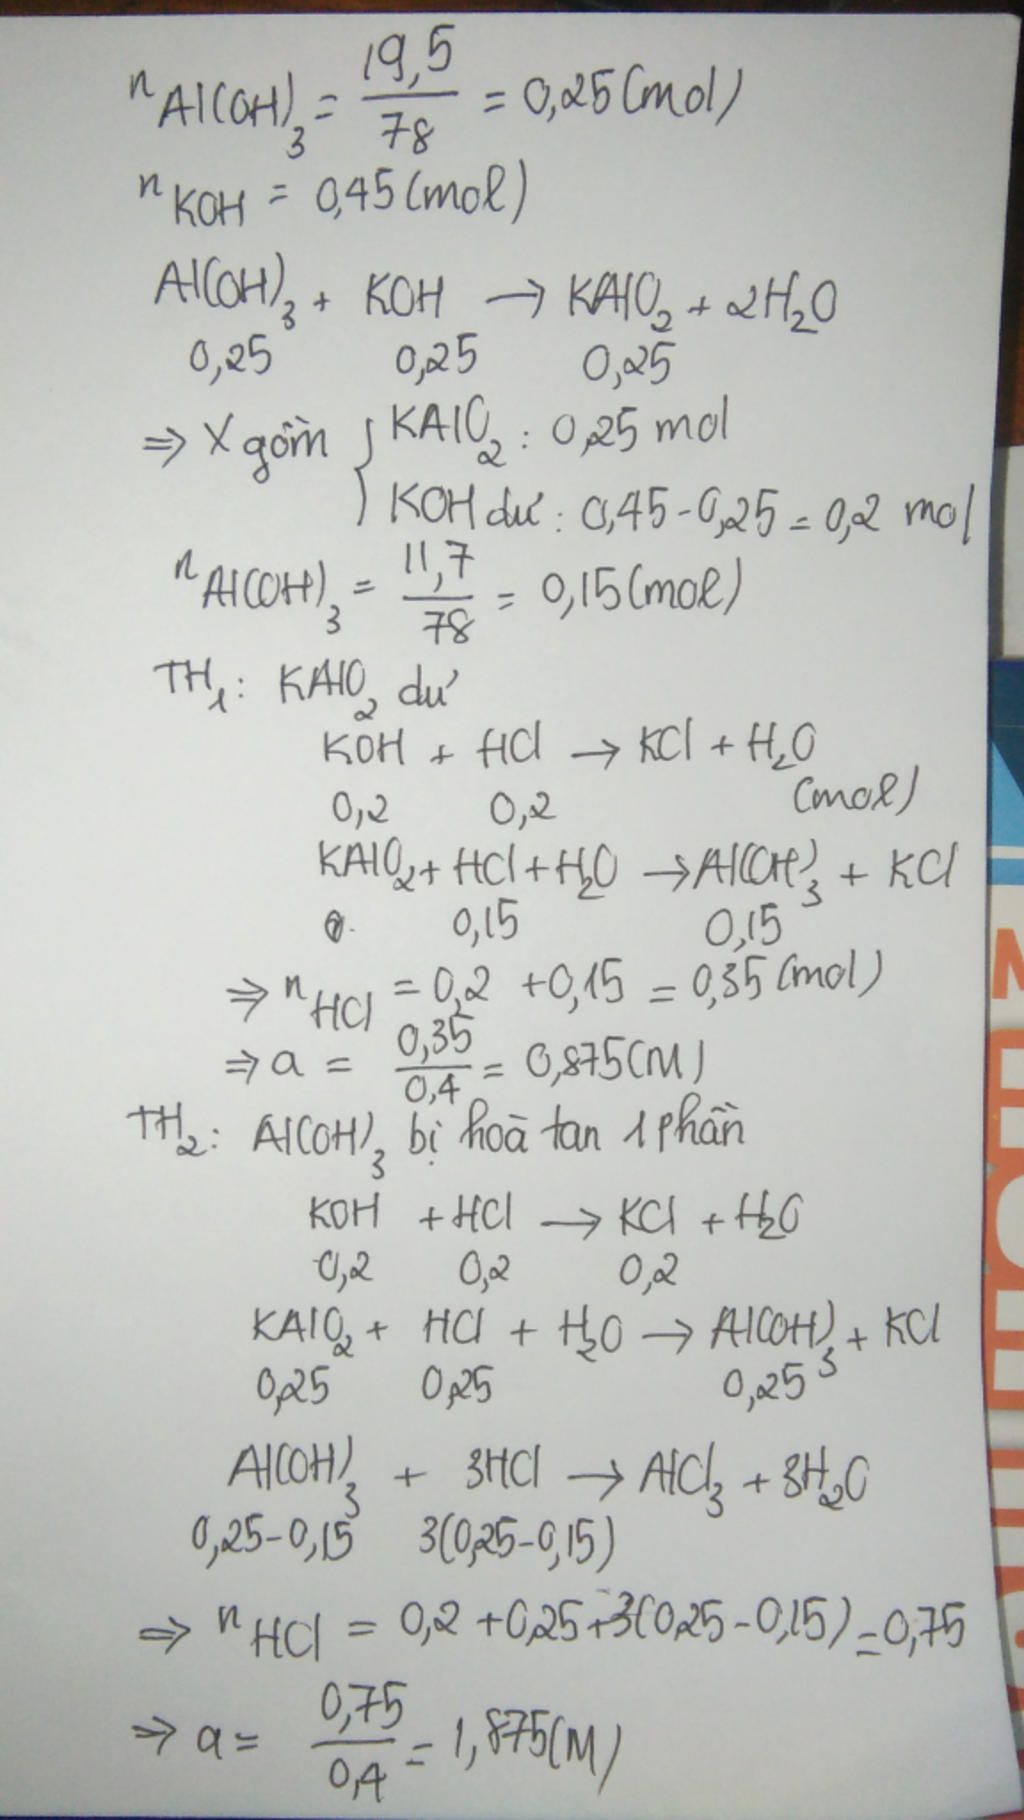 nAl(OH)3 = 19,5/78 = 0,25(mol)
nKOH = 0,45(mol)
Al(OH)3 + KOH → KAlO2 + 2H2O
0,25 0,25 0,25
⇒ X gồm { KAlO2 : 0,25 mol
KOH dư : 0,45-0,25 = 0,2 mol
nAl(OH)3 = 11,7/78 = 0,15(mol)
TH1: KAlO2 dư
KOH + HCl → KCl + H2O
0,2 0,2 (mol)
KAlO2 + HCl + H2O → Al(OH)3 + KCl
0,15 0,15
⇒ nHCl = 0,2 + 0,15 = 0,35(mol)
⇒ a = 0,35/0,4 = 0,875(M)
TH2: Al(OH)3 bị hoà tan 1 phần
KOH + HCl → KCl + H2O
0,2 0,2 0,2
KAlO2 + HCl + H2O → Al(OH)3 + KCl
0,25 0,25 0,25
Al(OH)3 + 3HCl → AlCl3 + 3H2O
0,25-0,15 3(0,25-0,15)
⇒ nHCl = 0,2 + 0,25 + 3(0,25-0,15) = 0,75
⇒ a = 0,75/0,4 = 1,875(M)